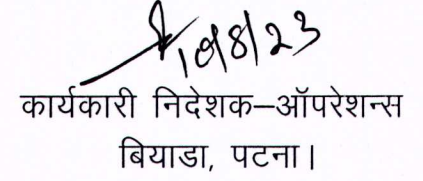 10/8/23
कार्यकारी निदेशक–ऑपरेशन्स
बियाडा, पटना।